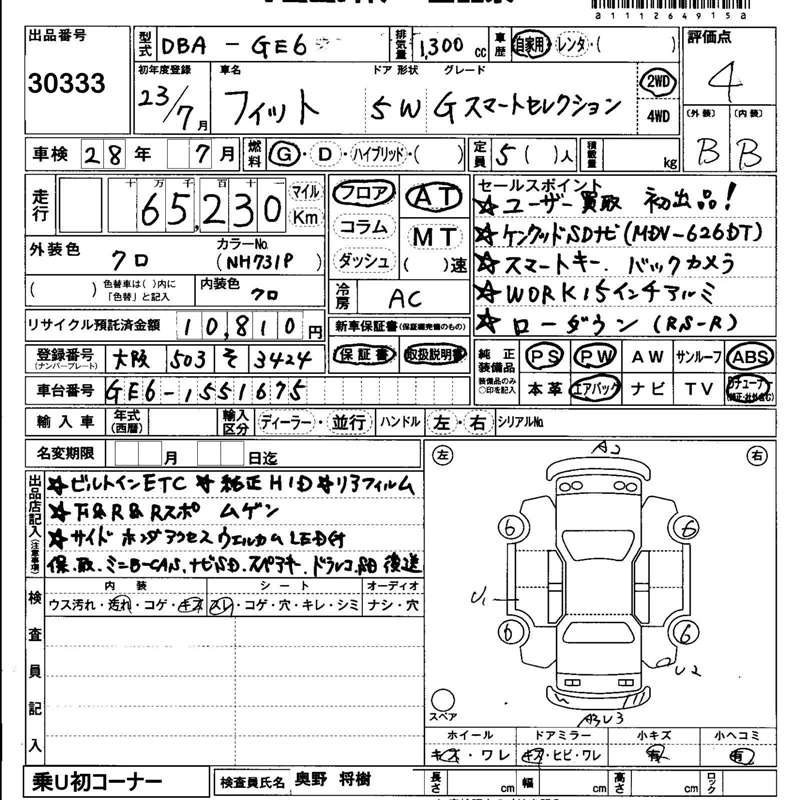 a111264915a
出品番号 型式 DBA - GE6 排気量 1,300 cc 車歴 自家用・レンタ・( ) 評価点
30333 初年度登録 車名 ドア 形状 グレード 4
23/7月 フィット 5 W G スマートセレクション 2WD 4WD (外装) (内装)
車検 28年 7月 燃料 G・D・ハイブリッド・( ) 定員 5( )人 積載量 kg B B
走行 十万千百十一 65,230 マイル Km フロア コラム ダッシュ AT MT ( )速
セールスポイント
☆ユーザー買取 初出品!
☆ケンウッドSDナビ(MDV-626DT)
☆スマートキー.バックカメラ
☆WORK15インチアルミ
☆ローダウン(RS-R)
外装色 クロ カラーNo. (NH731P)
( ) 色替車は( )内に「色替」と記入 内装色 クロ 冷房 AC
リサイクル預託済金額 10,810円 新車保証書(保証継続完備のもの)
登録番号(ナンバープレート) 大阪 503 そ 3424 保証書 取扱説明書
純正装備品 装備品のみ○印を記入 PS PW AW サンルーフ ABS
車台番号 GE6-1551675 本革 エアバック ナビ TV
輸入車 年式(西暦) 輸入区分 ディーラー・並行 ハンドル 左・右 シリアルNo.
名変期限 月 日迄
出品店記入(注意事項)
☆ビルトインETC ☆純正HID☆リアフィルム
☆F&R&Rスポ ムゲン
☆サイド ホンダアクセス ウェルカムLED付
保.取.ミニB-CAS.ナビSD.スペアキー.ドラレコ 後送
検査員記入
内装 シート オーディオ
ウス汚れ・汚れ・コゲ・キズ スレ・コゲ・穴・キレ・シミ ナシ・穴
左 右
A2
6 6
U1
6 6
U2
スペア
A3U3
ホイール ドアミラー 小キズ 小ヘコミ
キズ・ワレ キズ・ヒビ・ワレ 有 有
乗U初コーナー 検査員氏名 奥野 将樹 長さ cm 幅 cm 高さ cm ロック